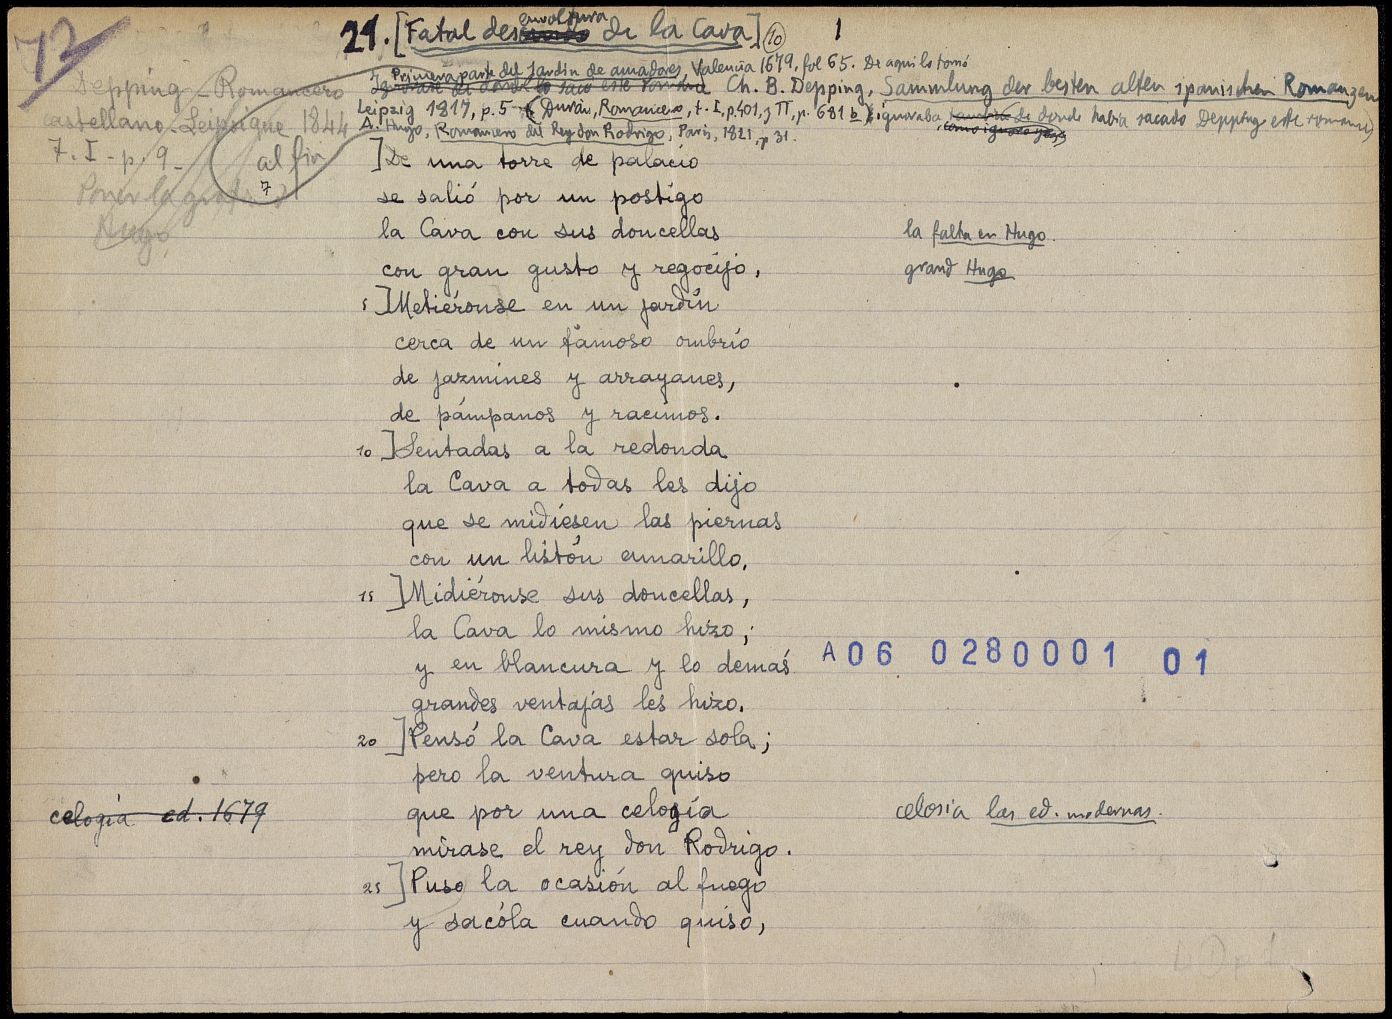 73
21. [Fatal desenvoltura de la Cava] (10) 1
Primera parte del Jardín de amadores, Valencia 1679, fol 65. De aquí lo tomó
Ch. B. Depping, Sammlung der besten alten spanischen Romanzen
Leipzig 1817, p. 5 (Durán, Romancero, t. I, p. 401, y II, p. 681 b ignoraba de donde había sacado Depping este romance)
A. Hugo, Romancero del Rey don Rodrigo, Paris, 1821, p 31.
Depping - Romancero
castellano - Leipsique 1844
T. I - p. 9 -
al fin
7
Poner la
Hugo
] De una torre de palacio
se salió por un postigo
la Cava con sus doncellas
la falta en Hugo.
con gran gusto y regocijo,
grand Hugo
5 ] Metiéronse en un jardín
cerca de un famoso ombrío
de jazmines y arrayanes,
de pámpanos y racimos.
10 ] Sentadas a la redonda
la Cava a todas les dijo
que se midiesen las piernas
con un listón amarillo.
15 ] Midiéronse sus doncellas,
la Cava lo mismo hizo;
y en blancura y lo demás
A06 0280001 01
grandes ventajas les hizo.
20 ] Pensó la Cava estar sola;
pero la ventura quiso
celogía ed. 1679
que por una celogía
celosía las ed. modernas.
mirase el rey don Rodrigo.
25 ] Puso la ocasión al fuego
y sacóla cuando quiso,